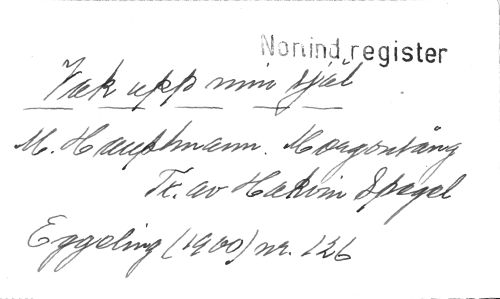 Norlind register
Vak upp min själ
M. Hauptmann. Morgonsång
Tr. av Hakvin Spegel
Eggeling (1900) nr. 126